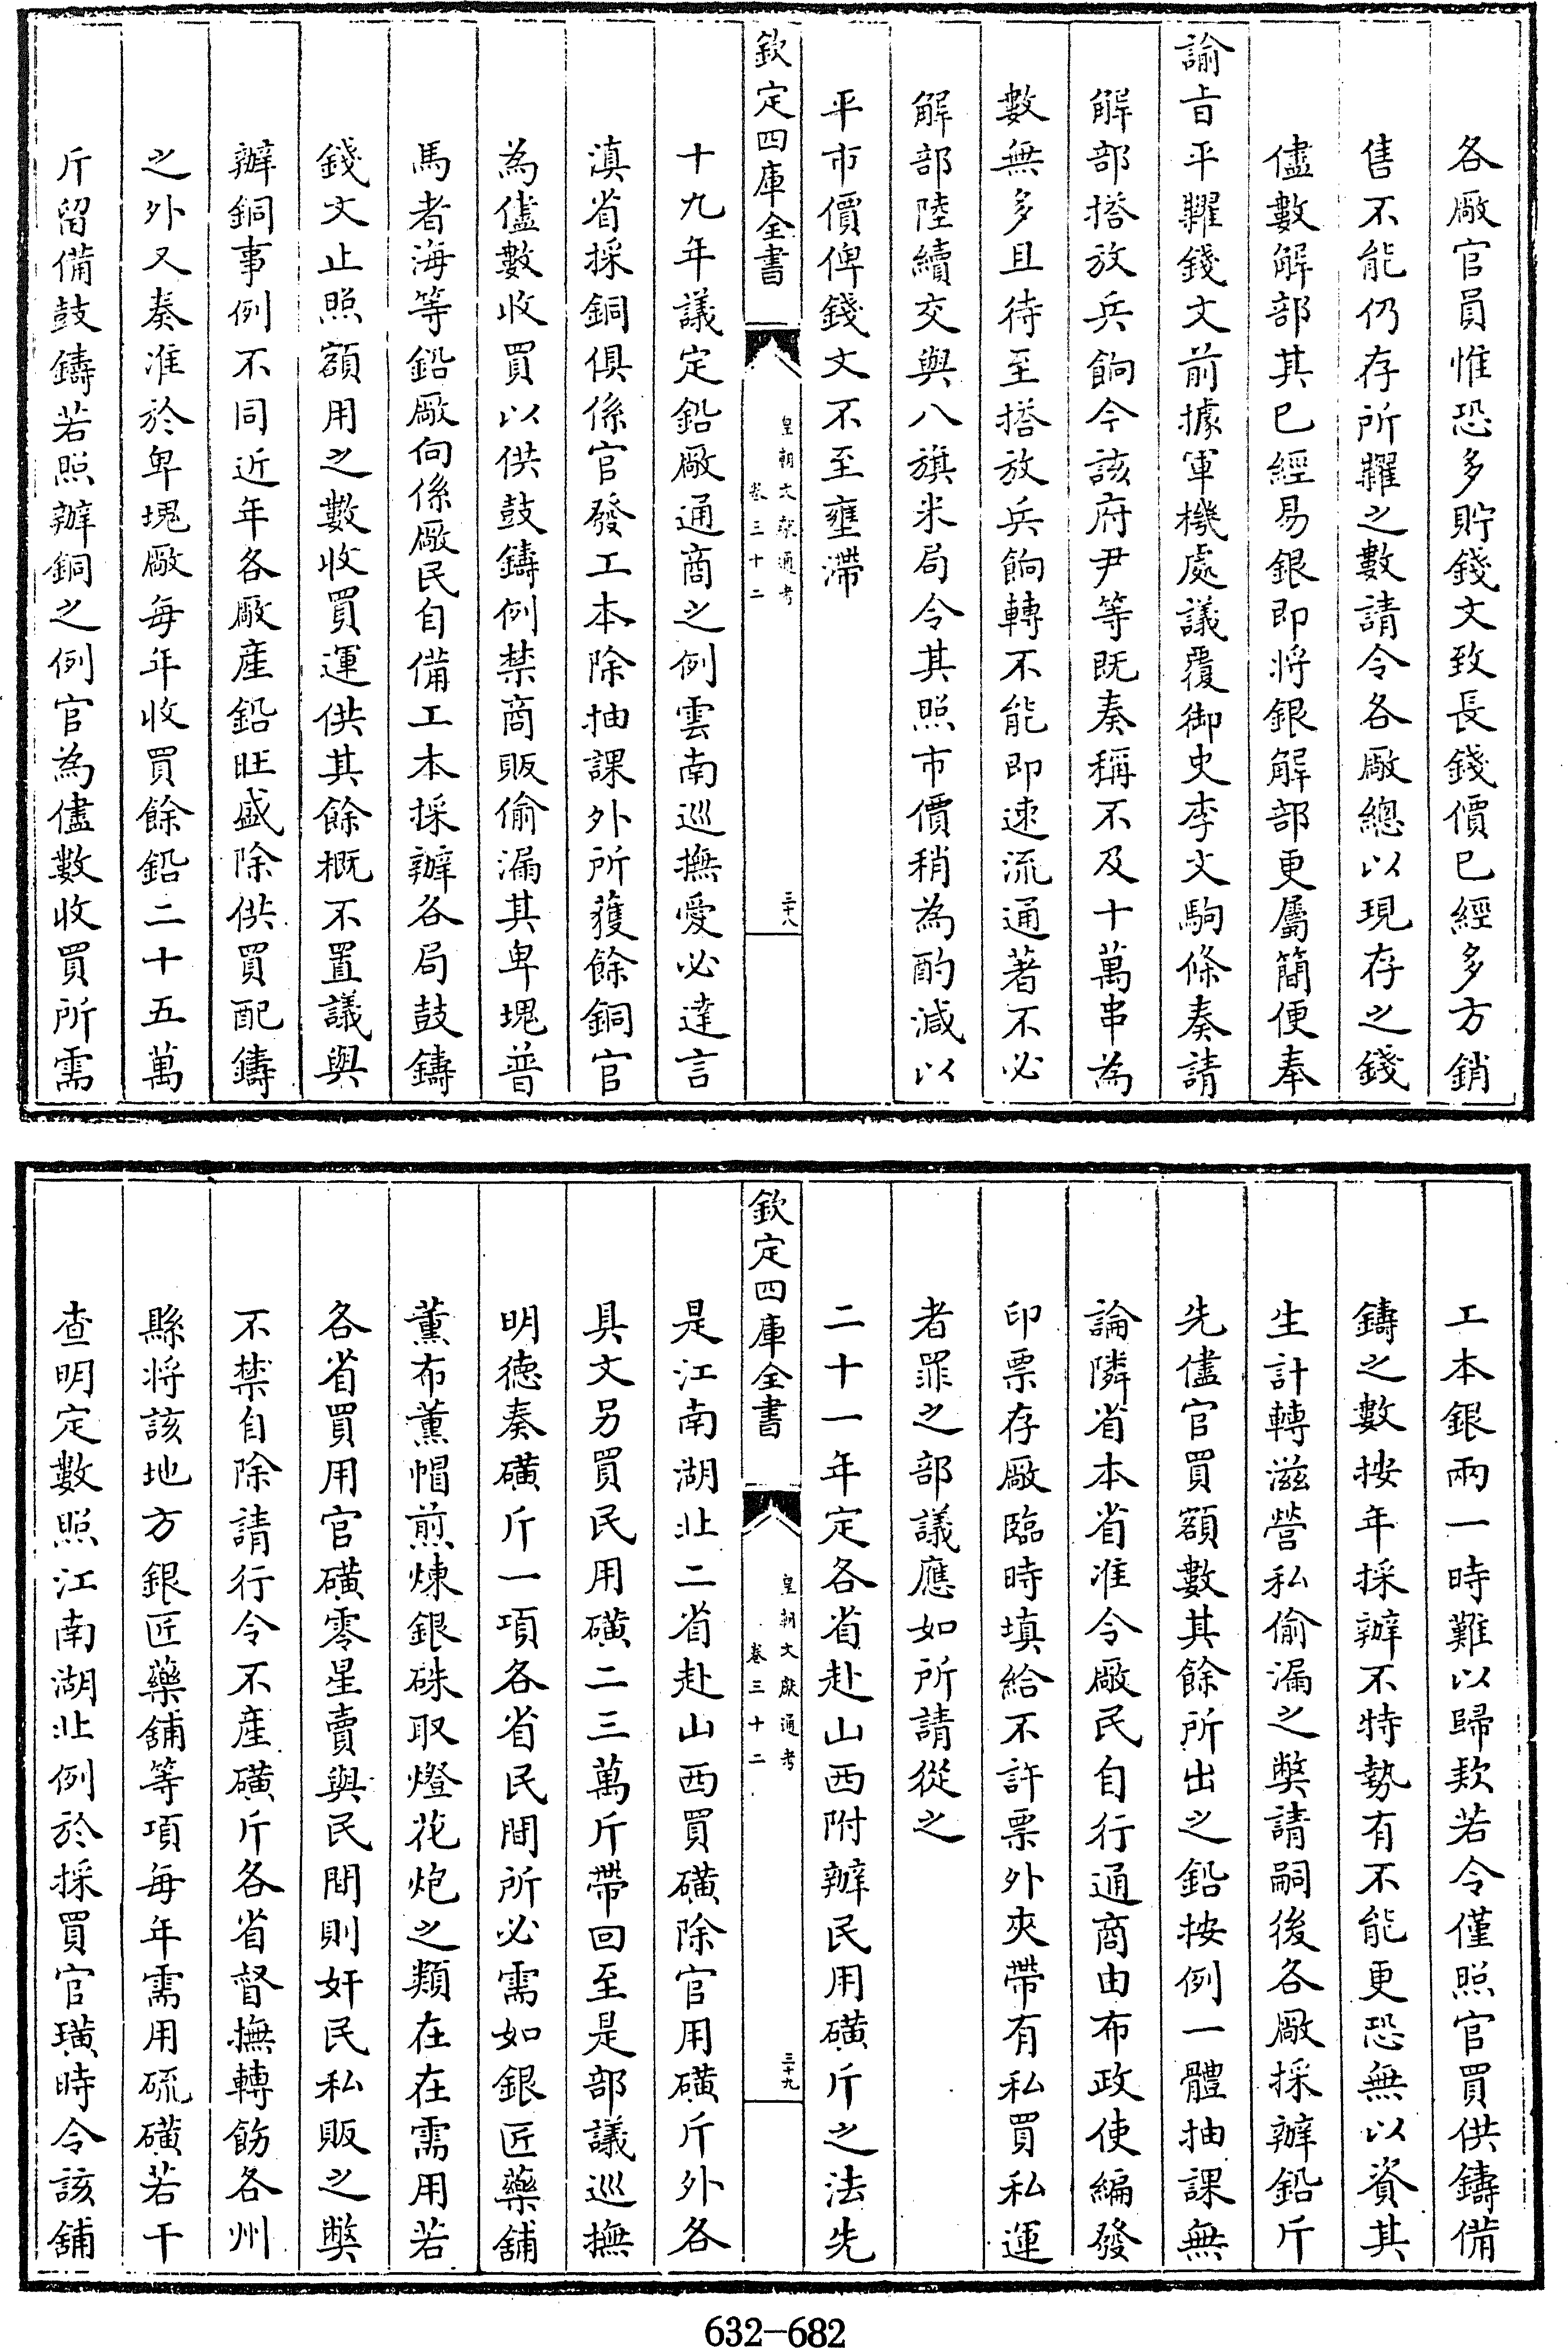 各廠官員惟恐多貯錢文致長錢價已經多方銷
售不能仍存所糶之數請令各廠總以現存之錢
儘數解部其已經易銀即將銀解部更屬簡便奉
諭旨平糶錢文前據軍機處議覆御史李文駒條奏請
解部搭放兵餉今該府尹等既奏稱不及十萬串為
數無多且待至搭放兵餉轉不能即速流通著不必
解部陸續交與八旗米局令其照市價稍為酌減以
平市價俾錢文不至壅滯
欽定四庫全書
皇朝文獻通考
卷三十二
三十八
十九年議定鉛廠通商之例雲南巡撫愛必達言
滇省採銅俱係官發工本除抽課外所獲餘銅官
為儘數收買以供鼓鑄例禁商販偷漏其卑塊普
馬者海等鉛廠向係廠民自備工本採辦各局鼓鑄
錢文止照額用之數收買運供其餘概不置議與
辦銅事例不同近年各廠產鉛旺盛除供買配鑄
之外又奏准於卑塊廠每年收買餘鉛二十五萬
斤留備鼓鑄若照辦銅之例官為儘數收買所需
工本銀兩一時難以歸款若令僅照官買供鑄備
鑄之數按年採辦不特勢有不能更恐無以資其
生計轉滋營私偷漏之弊請嗣後各廠採辦鉛斤
先儘官買額數其餘所出之鉛按例一體抽課無
論隣省本省准令廠民自行通商由布政使編發
印票存廠臨時填給不許票外夾帶有私買私運
者罪之部議應如所請從之
二十一年定各省赴山西附辦民用磺斤之法先
欽定四庫全書
皇朝文獻通考
卷三十二
三十九
是江南湖北二省赴山西買磺除官用磺斤外各
具文另買民用磺二三萬斤帶回至是部議巡撫
明德奏磺斤一項各省民間所必需如銀匠藥舖
薰布薰帽煎煉銀硃取燈花炮之類在在需用若
各省買用官磺零星賣與民間則奸民私販之弊
不禁自除請行令不產磺斤各省督撫轉飭各州
縣將該地方銀匠藥舖等項每年需用硫磺若干
查明定數照江南湖北例於採買官磺時令該舖
632-682